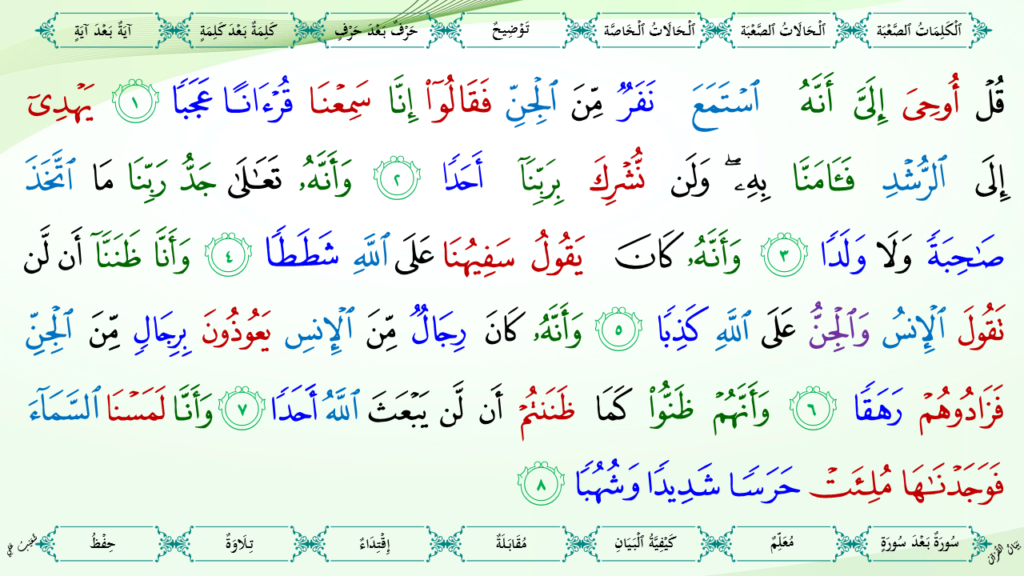 ٱلْكَلِمَاتُ ٱلصَّعْبَة ٱلْحَالَاتُ ٱلصَّعْبَة ٱلْحَالَاتُ ٱلْخَاصَّة تَوْضِيحٌ حَرْفٌ بَعْدَ حَرْفٍ كَلِمَةٌ بَعْدَ كَلِمَةٍ آيَةٌ بَعْدَ آيَةٍ
قُلْ أُوحِىَ إِلَىَّ أَنَّهُ ٱسْتَمَعَ نَفَرٌ مِّنَ ٱلْجِنِّ فَقَالُوٓا۟ إِنَّا سَمِعْنَا قُرْءَانًا عَجَبًا ١ يَهْدِىٓ
إِلَى ٱلرُّشْدِ فَـَٔامَنَّا بِهِۦ ۖ وَلَن نُّشْرِكَ بِرَبِّنَآ أَحَدًا ٢ وَأَنَّهُۥ تَعَـٰلَىٰ جَدُّ رَبِّنَا مَا ٱتَّخَذَ
صَـٰحِبَةً وَلَا وَلَدًا ٣ وَأَنَّهُۥ كَانَ يَقُولُ سَفِيهُنَا عَلَى ٱللَّهِ شَطَطًا ٤ وَأَنَّا ظَنَنَّآ أَن لَّن
تَقُولَ ٱلْإِنسُ وَٱلْجِنُّ عَلَى ٱللَّهِ كَذِبًا ٥ وَأَنَّهُۥ كَانَ رِجَالٌ مِّنَ ٱلْإِنسِ يَعُوذُونَ بِرِجَالٍ مِّنَ ٱلْجِنِّ
فَزَادُوهُمْ رَهَقًا ٦ وَأَنَّهُمْ ظَنُّوا۟ كَمَا ظَنَنتُمْ أَن لَّن يَبْعَثَ ٱللَّهُ أَحَدًا ٧ وَأَنَّا لَمَسْنَا ٱلسَّمَآءَ
فَوَجَدْنَـٰهَا مُلِئَتْ حَرَسًا شَدِيدًا وَشُهُبًا ٨
سُورَةٌ بَعْدَ سُورَةٍ مُعَلِّمٌ كَيْفِيَّةُ ٱلْبَيَانِ مُقَابَلَةٌ إِقْتِدَاءٌ تِلَاوَةٌ حِفْظٌ
بَيَانُ القُرْآنِ